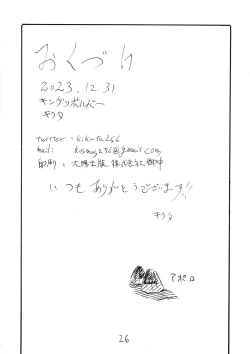 おくづけ
2023.12.31
キングリボルバー
キクタ
twitter: kikuta256
mail: @gmail.com
印刷: 大陽出版 株式会社御中
いつもありがとうございます!!
キクタ
アポロ
26